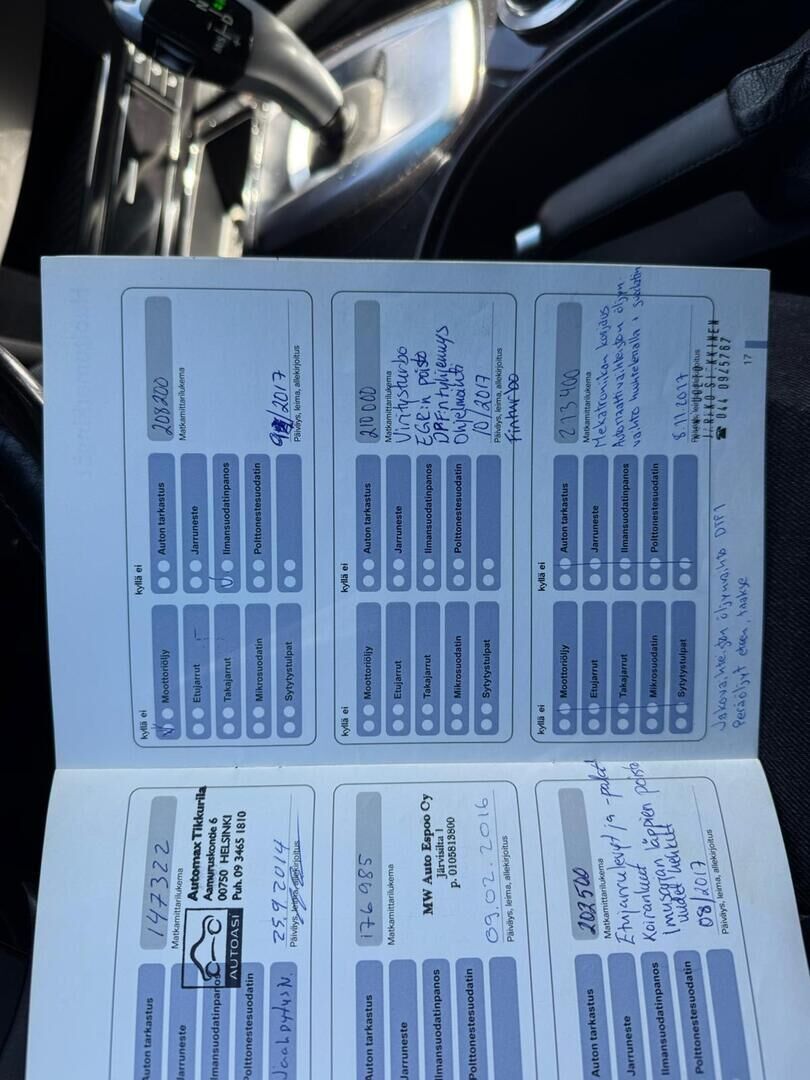 147322
Matkamittarilukema
Automax Tikkurila
Aamuruskontie 6
00750 HELSINKI
Puh. 09 3465 1810
AUTOASI
25.9.2014
Päiväys, leima, allekirjoitus
Auton tarkastus
Jarruneste
Ilmansuodatinpanos
Polttonestesuodatin
176985
Matkamittarilukema
MW Auto Espoo Oy
Järvisilta 1
p. 0105813800
09.02.2016
Päiväys, leima, allekirjoitus
Auton tarkastus
Jarruneste
Ilmansuodatinpanos
Polttonestesuodatin
202500
Matkamittarilukema
Etujarrulevyt ja -palat
Koiranluut
Imusarjan läppien poisto
uudet
08/2017
Päiväys, leima, allekirjoitus
Auton tarkastus
Jarruneste
Ilmansuodatinpanos
Polttonestesuodatin
kyllä ei
Moottoriöljy
Etujarrut
Takajarrut
Mikrosuodatin
Sytytystulpat
kyllä ei
Auton tarkastus
Jarruneste
Ilmansuodatinpanos
Polttonestesuodatin
208200
Matkamittarilukema
/2017
Päiväys, leima, allekirjoitus
kyllä ei
Moottoriöljy
Etujarrut
Takajarrut
Mikrosuodatin
Sytytystulpat
kyllä ei
Auton tarkastus
Jarruneste
Ilmansuodatinpanos
Polttonestesuodatin
210000
Matkamittarilukema
Viritysturbo
EGR:n poisto
DPF:n tyhjennys
Ohjelmointi
10/2017
Päiväys, leima, allekirjoitus
Finturbo
kyllä ei
Moottoriöljy
Etujarrut
Takajarrut
Mikrosuodatin
Sytytystulpat
kyllä ei
Auton tarkastus
Jarruneste
Ilmansuodatinpanos
Polttonestesuodatin
213400
Matkamittarilukema
Mekatroniikan korjaus
Automaattivaihteiston öljyn-
vaihto huuhtelemalla + suodatin
8.11.2017
Päiväys, leima, allekirjoitus
044 0945767
Jakovaihteiston öljynvaihto DTF1
Peräöljyt eteen, taakse
17